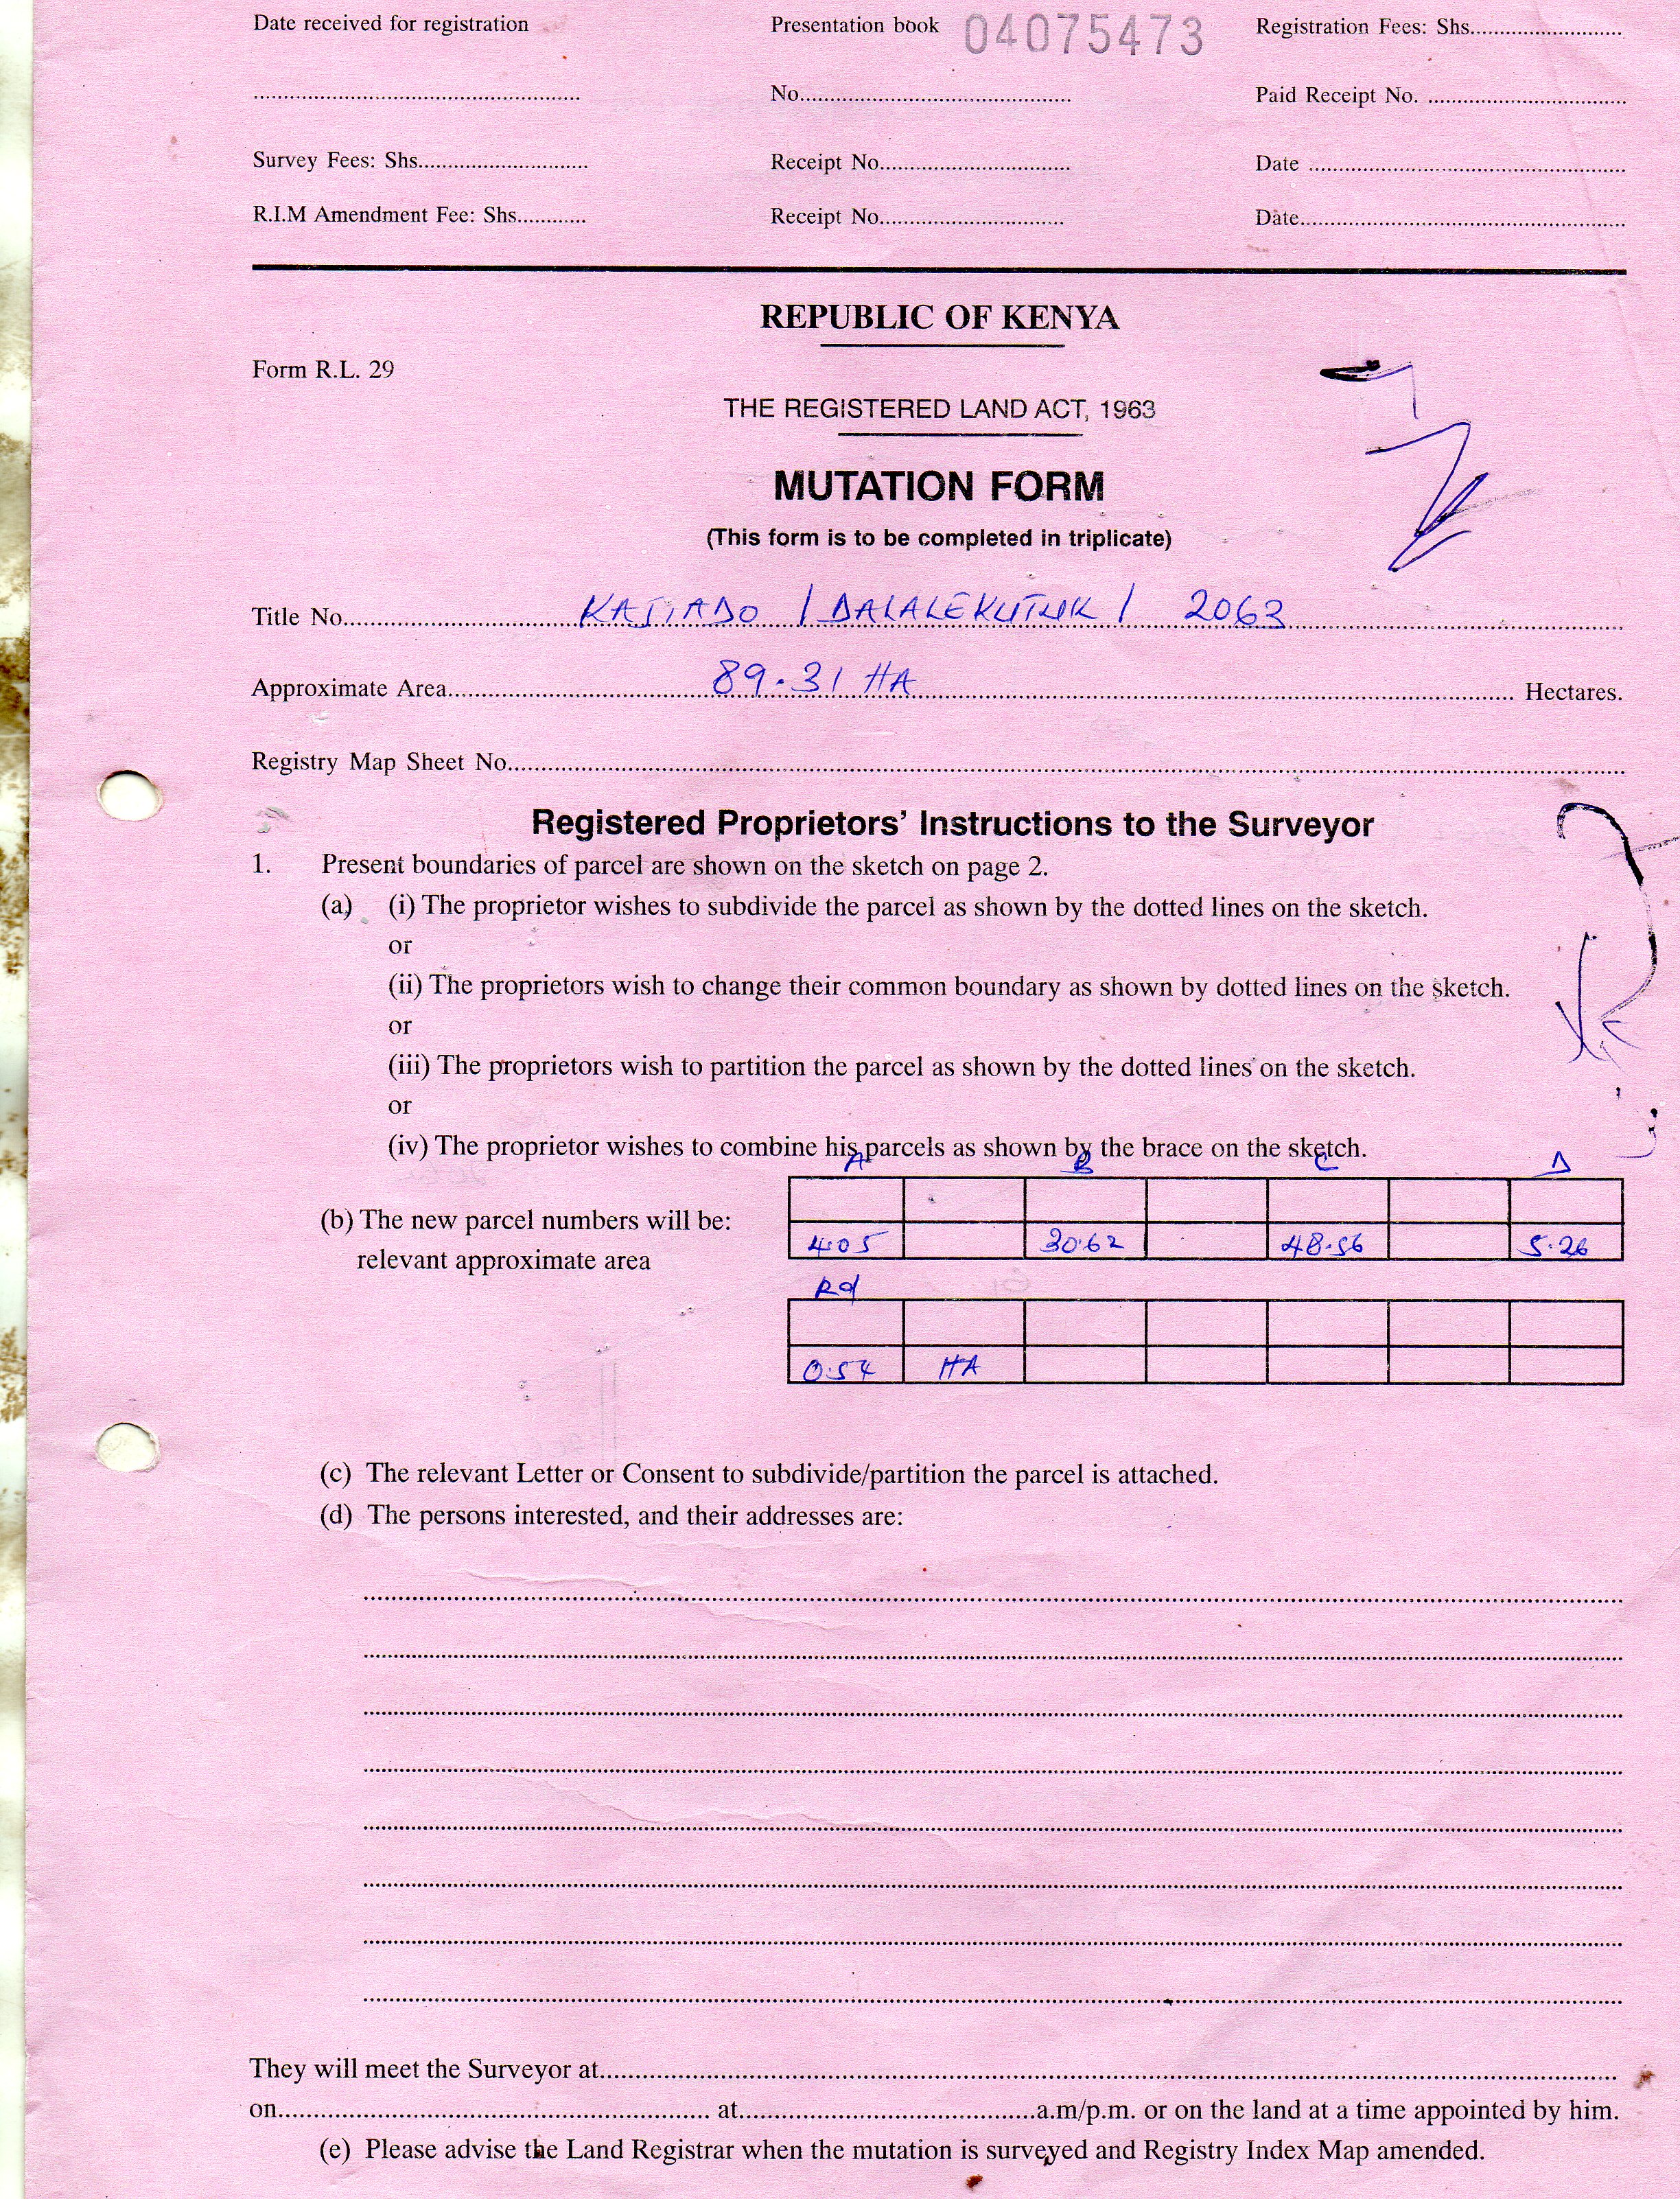 Date received for registration Presentation book 04075473 Registration Fees: Shs..............................
.............................................................. No..................................................... Paid Receipt No. ......................................
Survey Fees: Shs................................ Receipt No.................................... Date ............................................................
R.I.M Amendment Fee: Shs............ Receipt No.................................... Date..............................................................
REPUBLIC OF KENYA
Form R.L. 29
THE REGISTERED LAND ACT, 1963
MUTATION FORM
(This form is to be completed in triplicate)
Title No. KAJIADO / DALALEKUTUK / 2063
Approximate Area 89.31 HA Hectares.
Registry Map Sheet No.
Registered Proprietors' Instructions to the Surveyor
1. Present boundaries of parcel are shown on the sketch on page 2.
(a) (i) The proprietor wishes to subdivide the parcel as shown by the dotted lines on the sketch.
or
(ii) The proprietors wish to change their common boundary as shown by dotted lines on the sketch.
or
(iii) The proprietors wish to partition the parcel as shown by the dotted lines on the sketch.
or
(iv) The proprietor wishes to combine his parcels as shown by the brace on the sketch.
A B C D
(b) The new parcel numbers will be:
4.05 30.62 48.56 5.26
relevant approximate area
Rd
0.54 HA
(c) The relevant Letter or Consent to subdivide/partition the parcel is attached.
(d) The persons interested, and their addresses are:
They will meet the Surveyor at
on at a.m/p.m. or on the land at a time appointed by him.
(e) Please advise the Land Registrar when the mutation is surveyed and Registry Index Map amended.